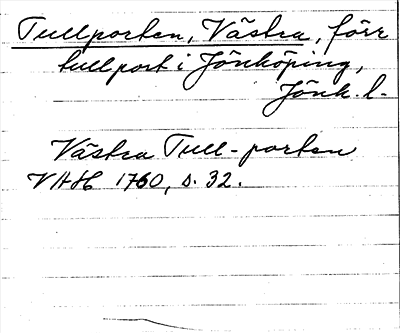 Tullporten, Västra, förr
tullport i Jönköping,
Jönk. l.
Västra Tull-porten
VHH 1760, s. 32.